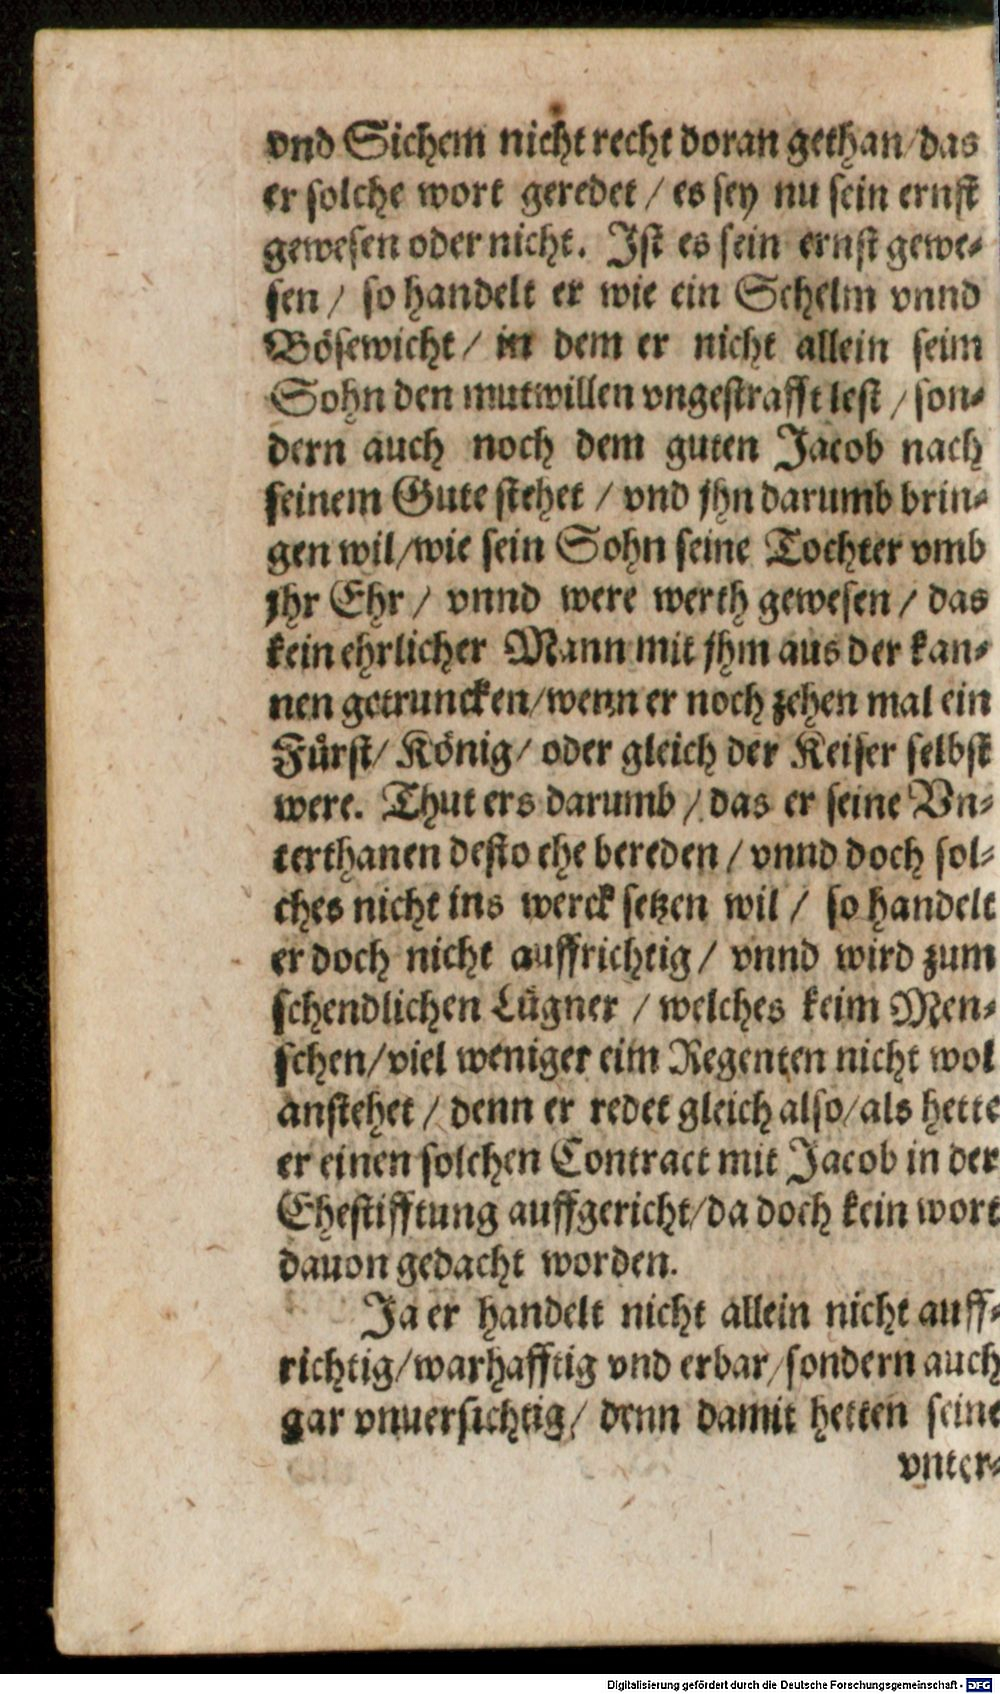 vnd Sichem nicht recht doran gethan/das
er solche wort geredet / es sey nu sein ernst
gewesen oder nicht. Ist es sein ernst gewe-
sen / so handelt er wie ein Schelm vnnd
Bösewicht / in dem er nicht allein seim
Sohn den mutwillen vngestrafft lest / son-
dern auch noch dem guten Jacob nach
seinem Gute stehet / vnd jhn darumb brin-
gen wil/wie sein Sohn seine Tochter vmb
jhr Ehr / vnnd were werth gewesen / das
kein ehrlicher Mann mit jhm aus der kan-
nen getruncken/wenn er noch zehen mal ein
Fürst/ König/ oder gleich der Keiser selbst
were. Thut ers darumb / das er seine Vn-
terthanen desto ehe bereden / vnnd doch sol-
ches nicht ins werck setzen wil / so handelt
er doch nicht auffrichtig / vnnd wird zum
schendlichen Lügner / welches keim Men-
schen/viel weniger eim Regenten nicht wol
anstehet / denn er redet gleich also/als hette
er einen solchen Contract mit Jacob in der
Ehestifftung auffgericht/da doch kein wort
dauon gedacht worden.
Ja er handelt nicht allein nicht auff-
richtig/warhafftig vnd erbar/sondern auch
gar vnuersichtig/ denn damit hetten seine
vnter-
Digitalisierung gefördert durch die Deutsche Forschungsgemeinschaft - DFG